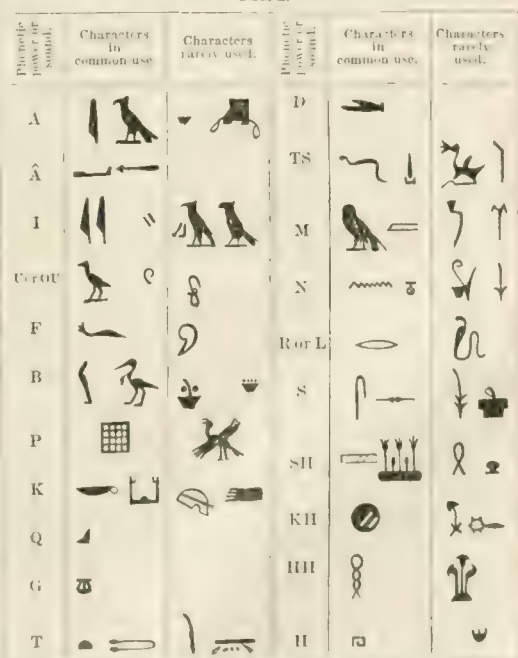 Phonetic power or sound.
Characters in common use.
Characters rarely used.
Phonetic Power or sound.
Characters in common use.
Characters rarely used.
A
Â
I
U or OU
F
B
P
K
Q
G
T
D
TS
M
N
R or L
S
SH
KH
HH
H